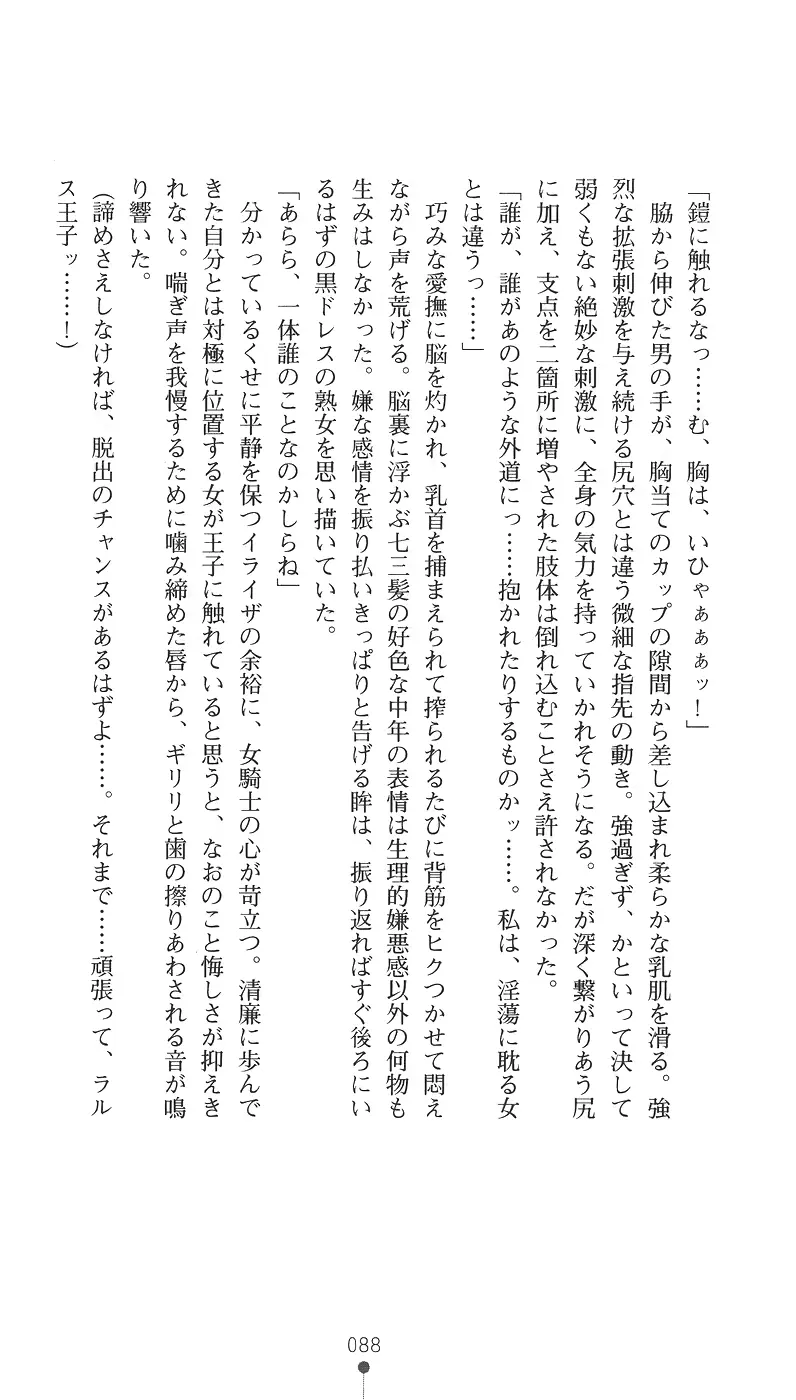 「鎧に触れるなっ……む、胸は、いひゃぁぁぁッ！」
　脇から伸びた男の手が、胸当てのカップの隙間から差し込まれ柔らかな乳肌を滑る。強
烈な拡張刺激を与え続ける尻穴とは違う微細な指先の動き。強過ぎず、かといって決して
弱くもない絶妙な刺激に、全身の気力を持っていかれそうになる。だが深く繋がりあう尻
に加え、支点を二箇所に増やされた肢体は倒れ込むことさえ許されなかった。
「誰が、誰があのような外道にっ……抱かれたりするものかッ……。私は、淫蕩に耽る女
とは違うっ……」
　巧みな愛撫に脳を灼かれ、乳首を捕まえられて搾られるたびに背筋をヒクつかせて悶え
ながら声を荒げる。脳裏に浮かぶ七三髪の好色な中年の表情は生理的嫌悪感以外の何物も
生みはしなかった。嫌な感情を振り払いきっぱりと告げる眸は、振り返ればすぐ後ろにい
るはずの黒ドレスの熟女を思い描いていた。
「あらら、一体誰のことなのかしらね」
　分かっているくせに平静を保つイライザの余裕に、女騎士の心が苛立つ。清廉に歩んで
きた自分とは対極に位置する女が王子に触れていると思うと、なおのこと悔しさが抑えき
れない。喘ぎ声を我慢するために噛み締めた唇から、ギリリと歯の擦りあわされる音が鳴
り響いた。
（諦めさえしなければ、脱出のチャンスがあるはずよ……。それまで……頑張って、ラル
ス王子ッ……！）
088